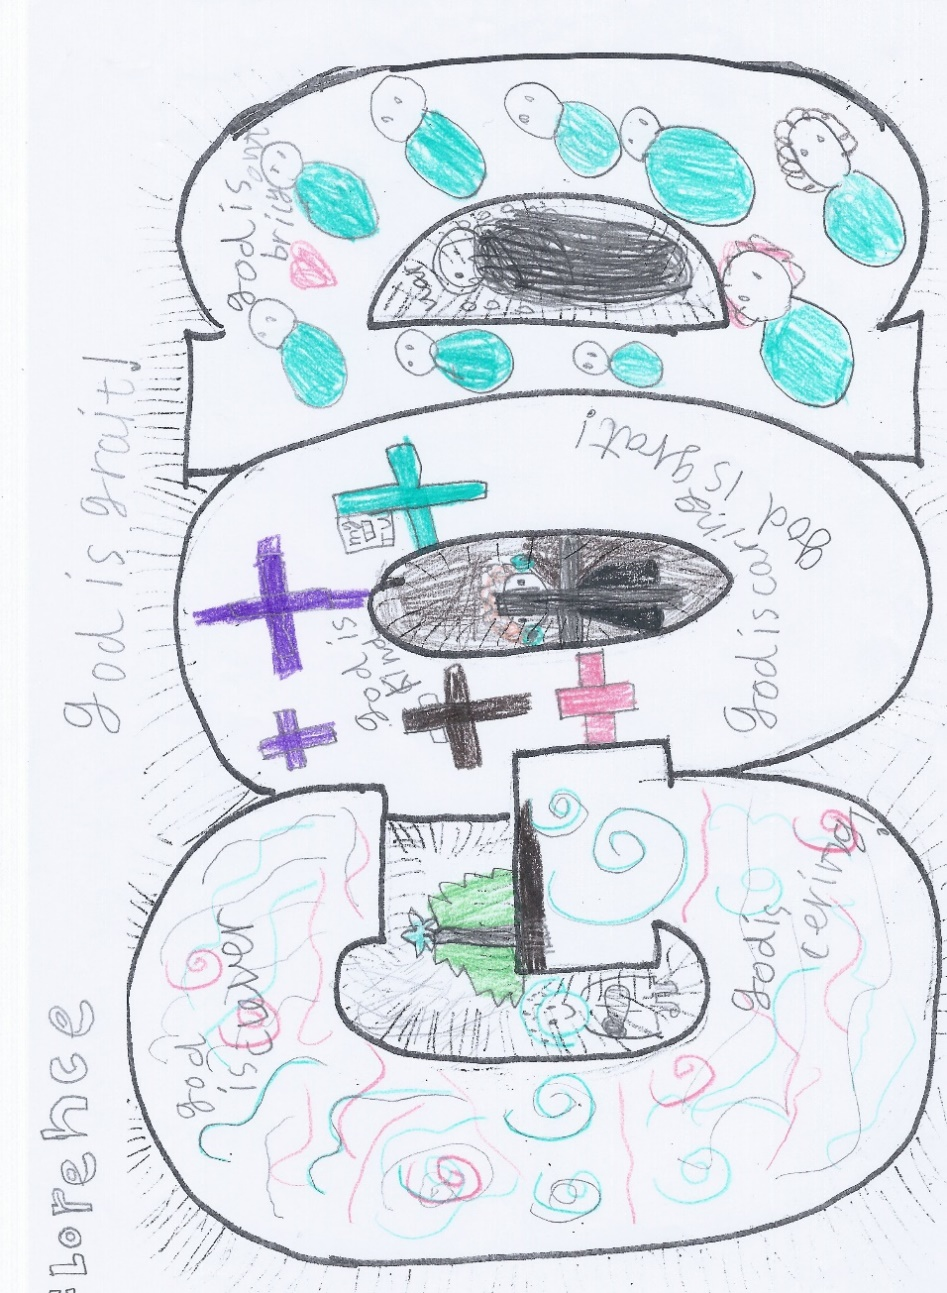 Florence
God is grait!
GOD
god
is
god is
cering
god is
kind
god is caring
god is grat!
god is
brily